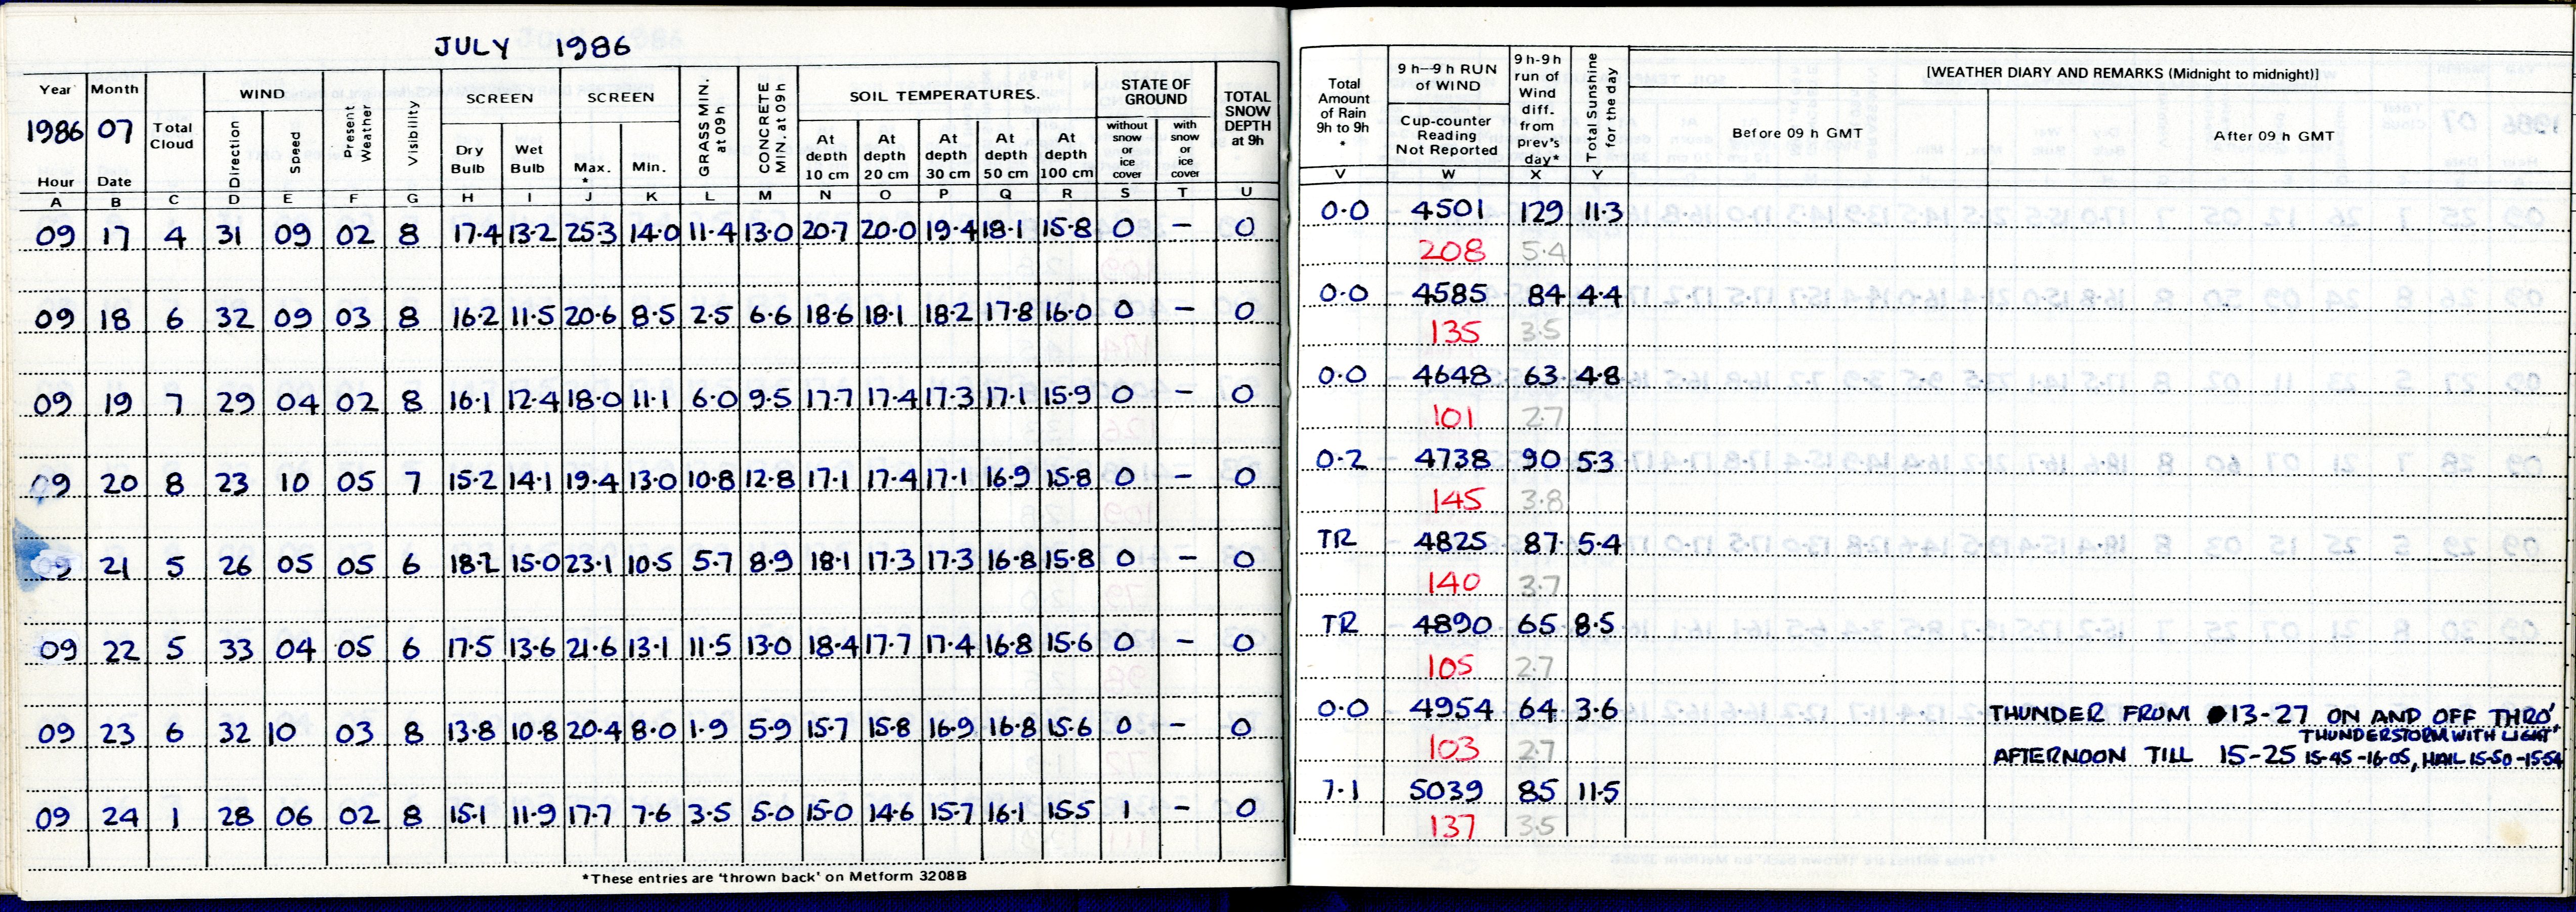 JULY 1986
Year Month Total Cloud WIND Present Weather Visibility SCREEN SCREEN GRASS MIN. at 09h CONCRETE MIN. at 09h SOIL TEMPERATURES. STATE OF GROUND TOTAL SNOW DEPTH at 9h
1986 07 Direction Speed Dry Bulb Wet Bulb Max. * Min. At depth 10 cm At depth 20 cm At depth 30 cm At depth 50 cm At depth 100 cm without snow or ice cover with snow or ice cover
Hour Date
A B C D E F G H I J K L M N O P Q R S T U
09 17 4 31 09 02 8 17.4 13.2 25.3 14.0 11.4 13.0 20.7 20.0 19.4 18.1 15.8 0 - 0
09 18 6 32 09 03 8 16.2 11.5 20.6 8.5 2.5 6.6 18.6 18.1 18.2 17.8 16.0 0 - 0
09 19 7 29 04 02 8 16.1 12.4 18.0 11.1 6.0 9.5 17.7 17.4 17.3 17.1 15.9 0 - 0
09 20 8 23 10 05 7 15.2 14.1 19.4 13.0 10.8 12.8 17.1 17.4 17.1 16.9 15.8 0 - 0
09 21 5 26 05 05 6 18.2 15.0 23.1 10.5 5.7 8.9 18.1 17.3 17.3 16.8 15.8 0 - 0
09 22 5 33 04 05 6 17.5 13.6 21.6 13.1 11.5 13.0 18.4 17.7 17.4 16.8 15.6 0 - 0
09 23 6 32 10 03 8 13.8 10.8 20.4 8.0 1.9 5.9 15.7 15.8 16.9 16.8 15.6 0 - 0
09 24 1 28 06 02 8 15.1 11.9 17.7 7.6 3.5 5.0 15.0 14.6 15.7 16.1 15.5 1 - 0
*These entries are 'thrown back' on Metform 3208B
Total Amount of Rain 9h to 9h * 9h—9h RUN of WIND Cup-counter Reading Not Reported 9h-9h run of Wind diff. from prev's day* Total Sunshine for the day [WEATHER DIARY AND REMARKS (Midnight to midnight)]
Before 09 h GMT After 09 h GMT
V W X Y
0.0 4501 129 11.3
208 5.4
0.0 4585 84 4.4
135 3.5
0.0 4648 63 4.8
101 2.7
0.2 4738 90 5.3
145 3.8
TR 4825 87 5.4
140 3.7
TR 4890 65 8.5
105 2.7
0.0 4954 64 3.6 THUNDER FROM 13-27 ON AND OFF THRO'
THUNDERSTORM WITH LIGHT'
103 2.7 AFTERNOON TILL 15-25 15-45-16-05, HAIL 15-50-15-54
7.1 5039 85 11.5
137 3.5